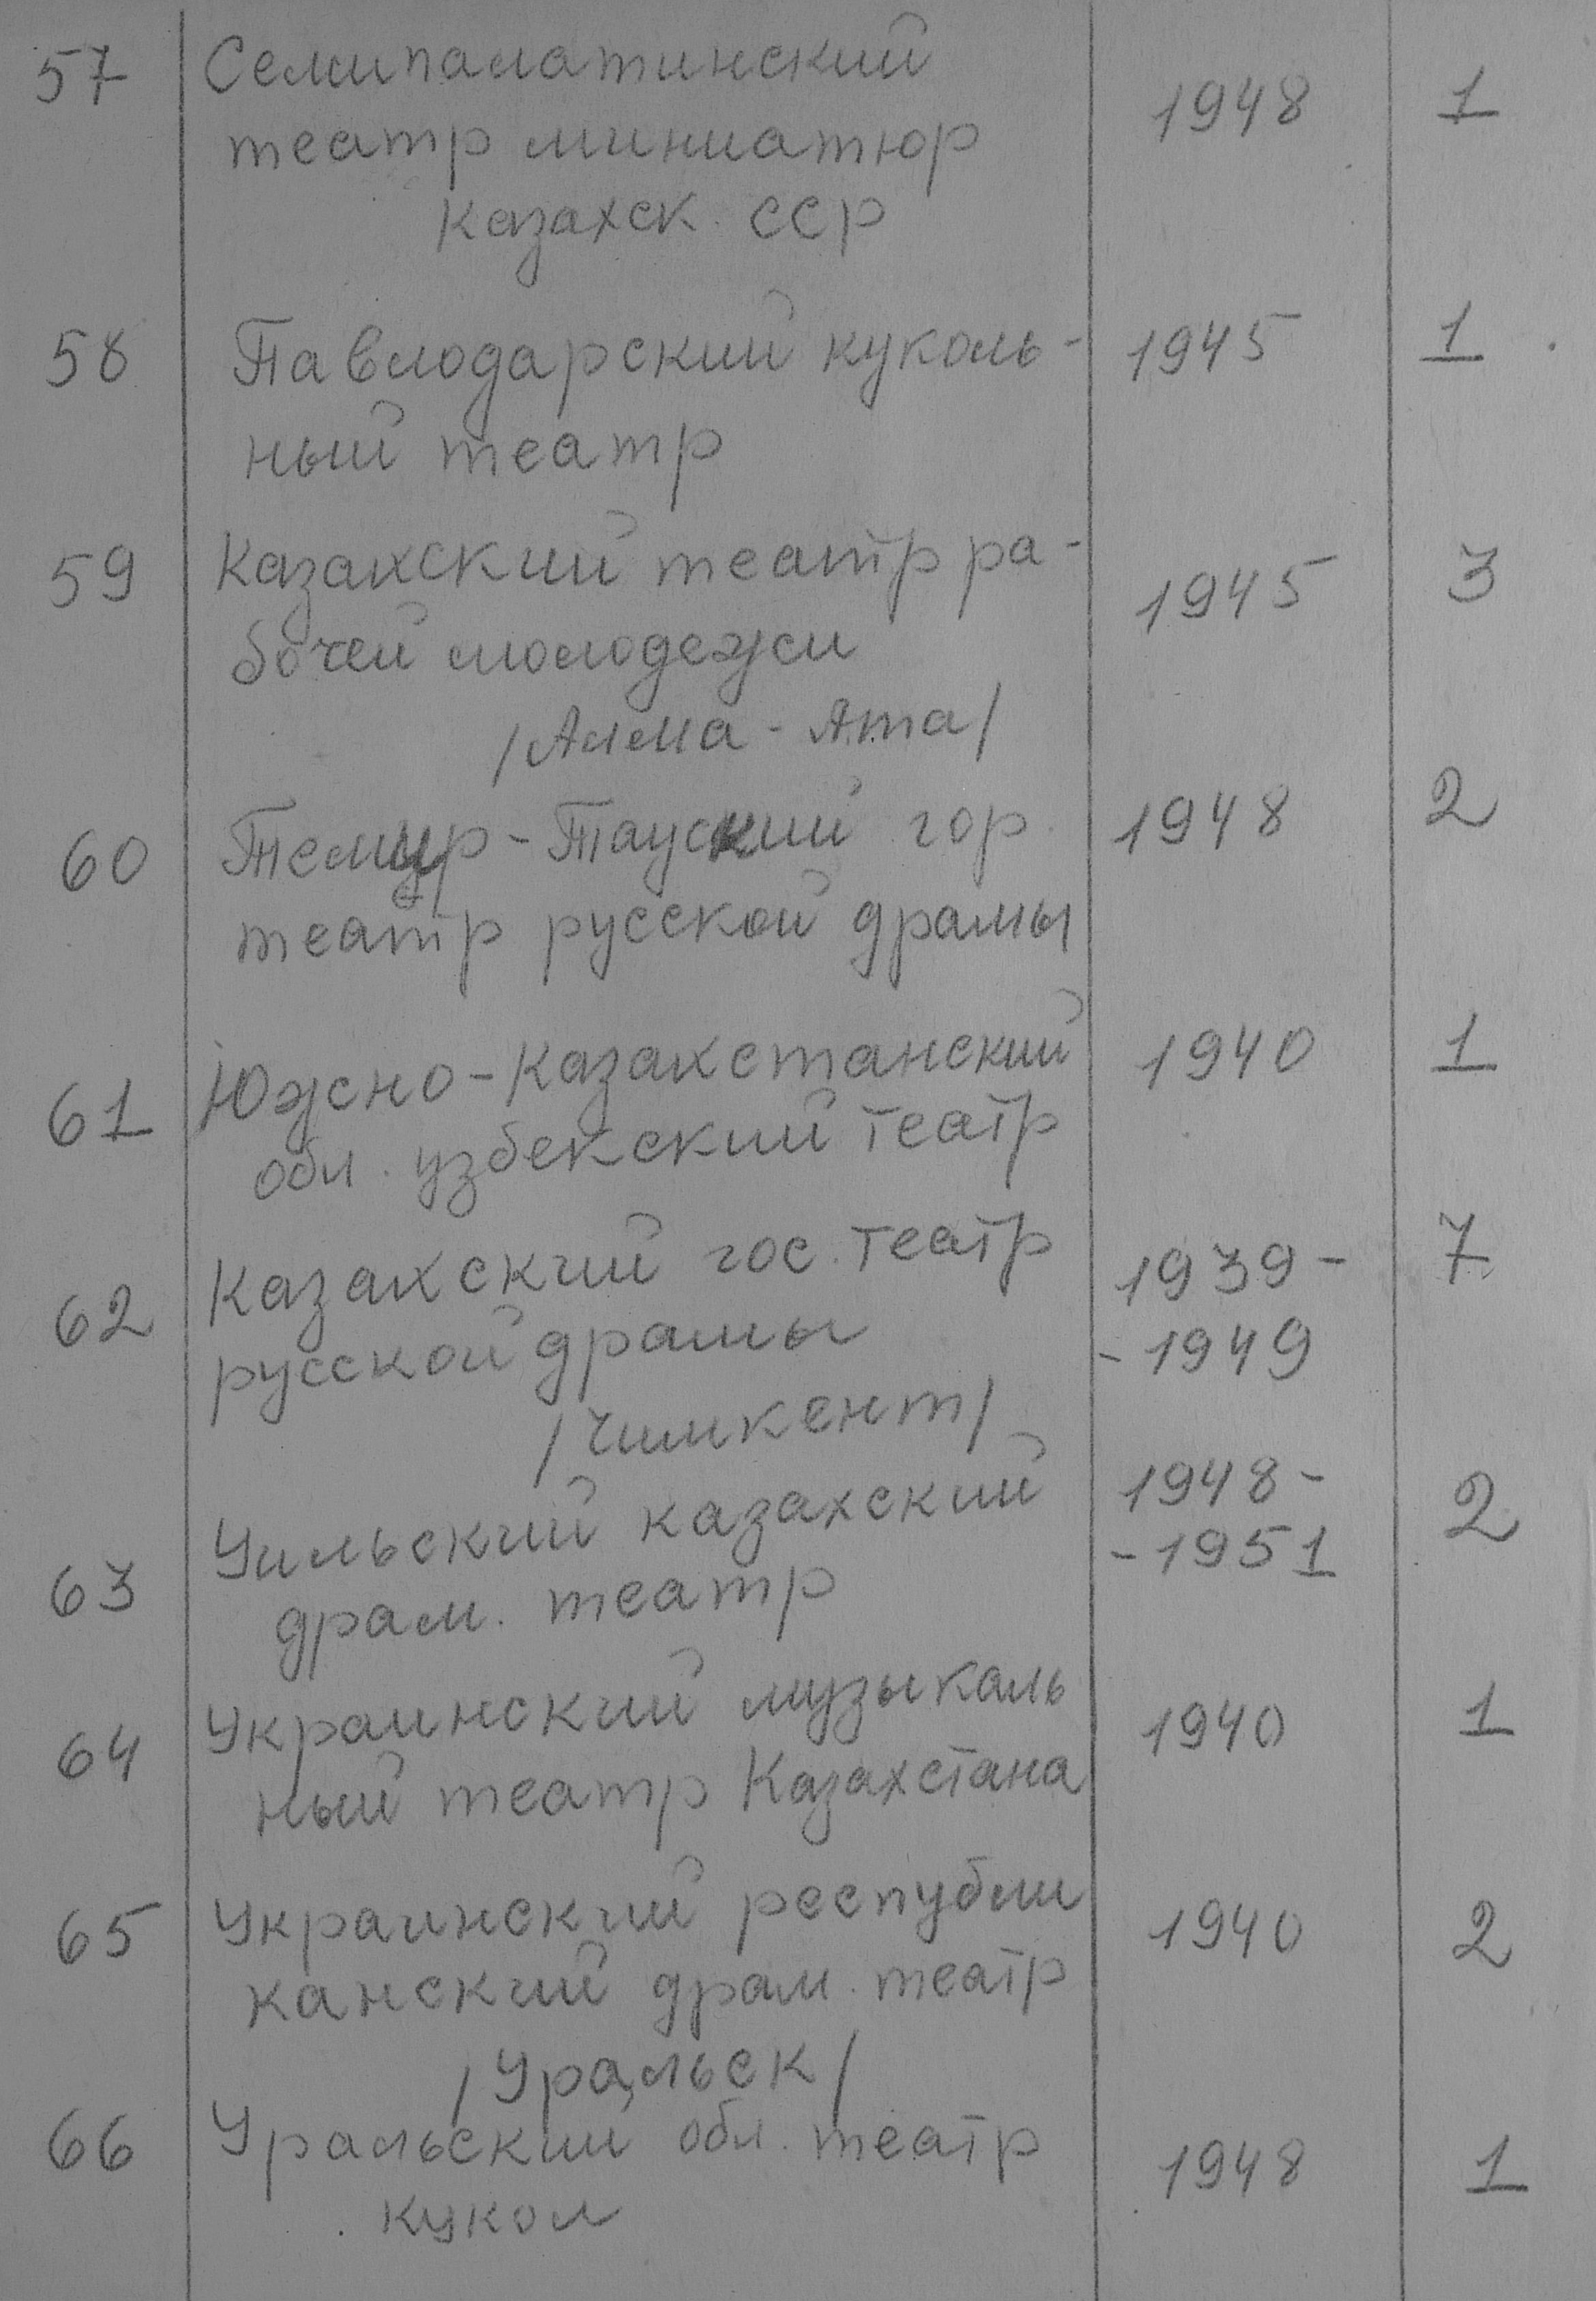 57 Семипалатинский 1948 1
театр миниатюр
Казахск. ССР
58 Павлодарский куколь- 1945 1
ный театр
59 Казахский театр ра- 1945 3
бочей молодежи
/Алма-Ата/
60 Темир-Тауский гор. 1948 2
театр русской драмы
61 Южно-Казахстанский 1940 1
обл. узбекский театр
62 Казахский гос. театр 1939- 7
русской драмы -1949
/Чимкент/
63 Уильский казахский 1948- 2
драм. театр -1951
64 Украинский музыкаль 1940 1
ный театр Казахстана
65 Украинский республи 1940 2
канский драм. театр
/Уральск/
66 Уральский обл. театр 1948 1
кукол